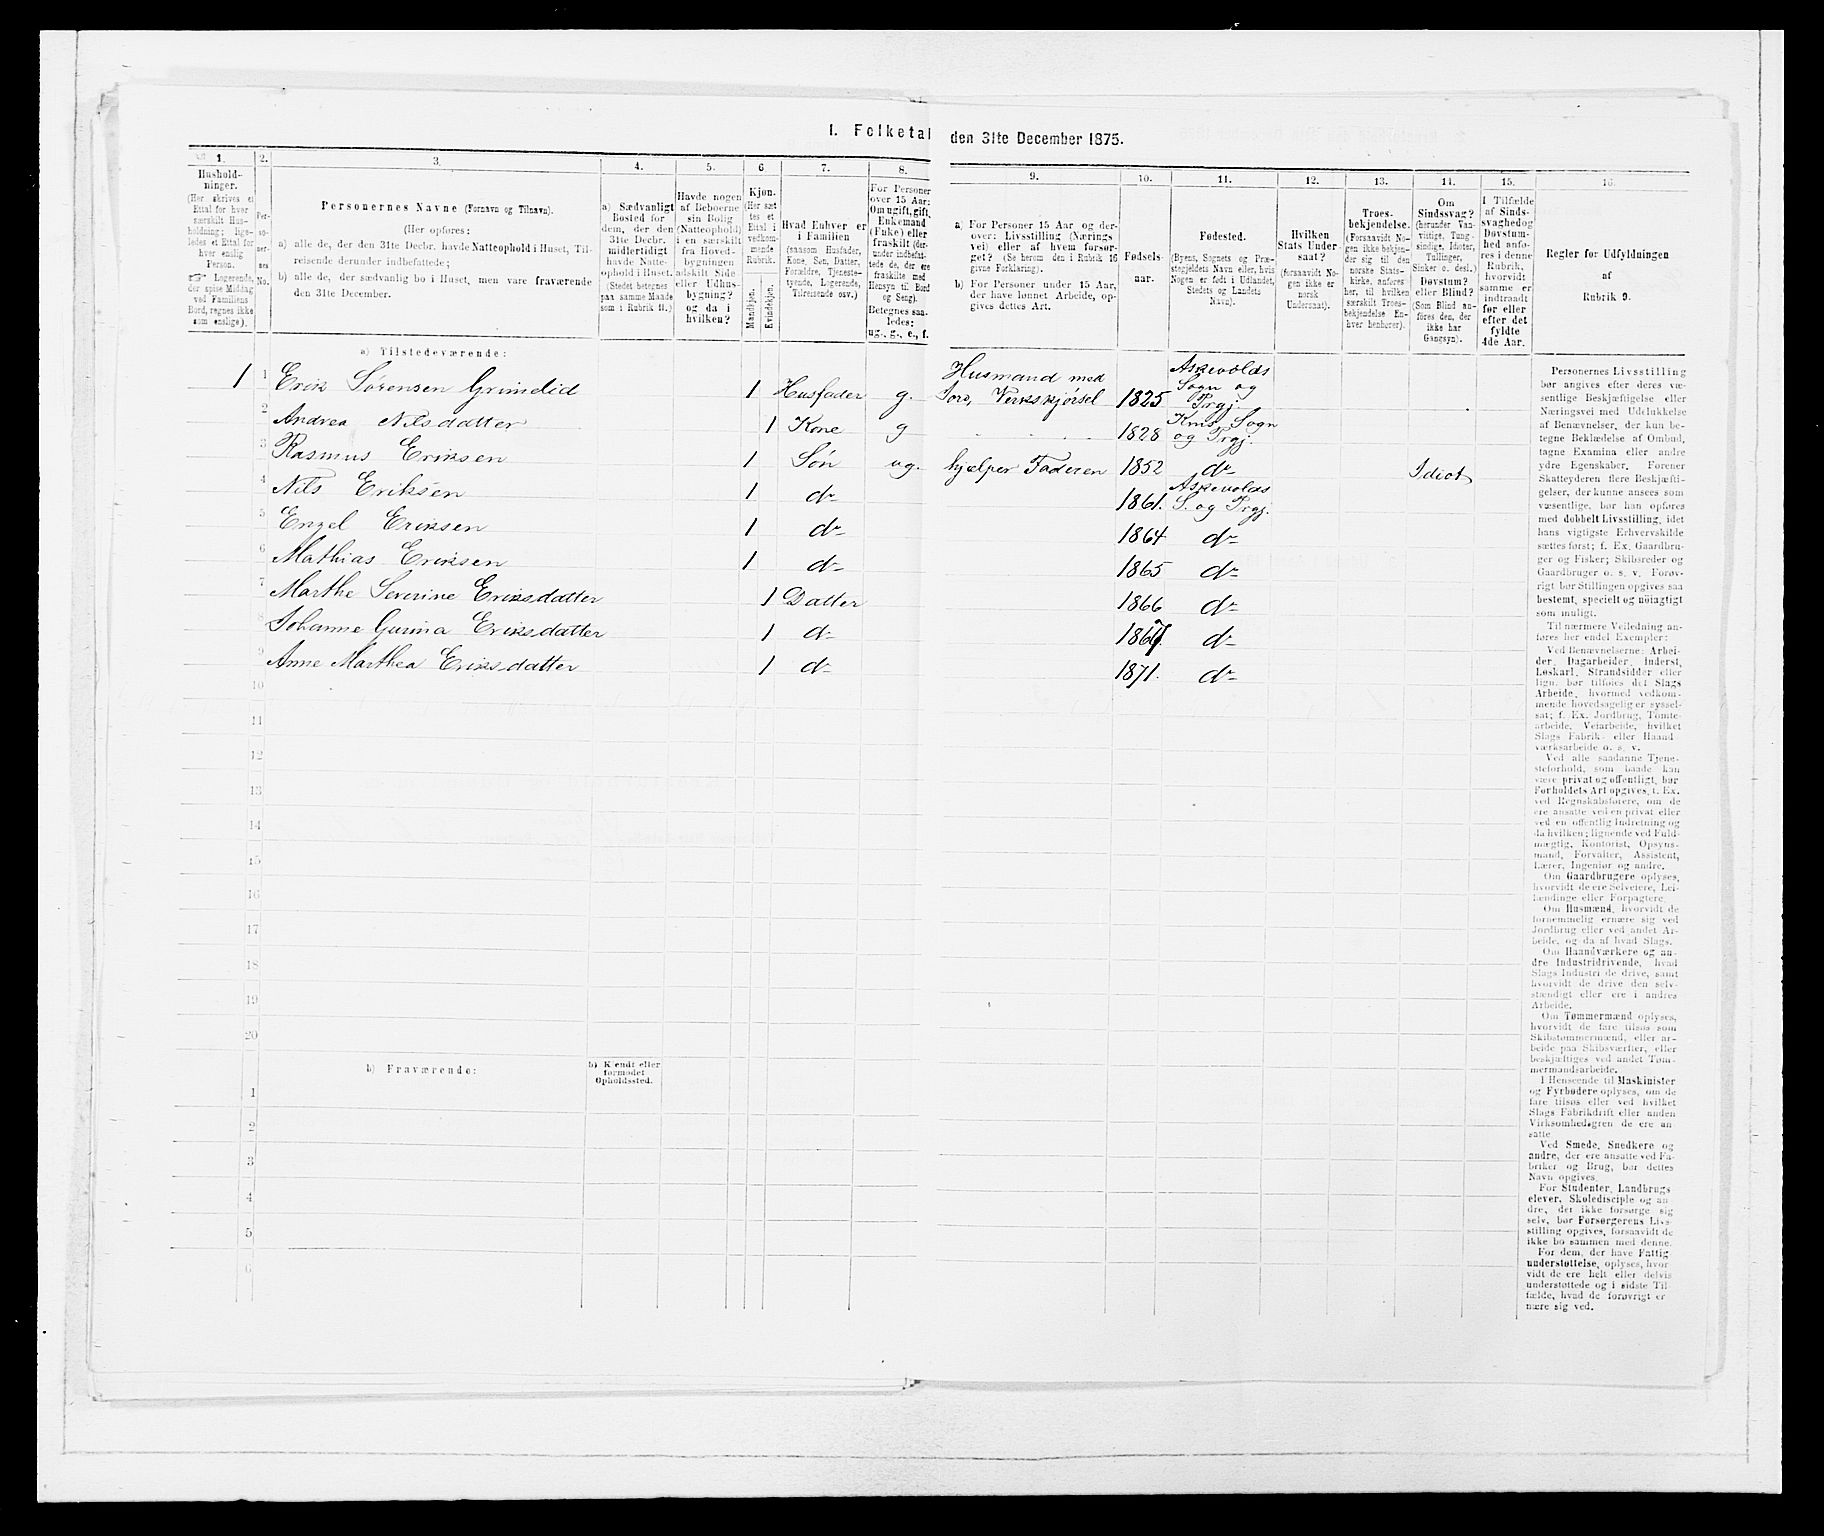 I. Folketal den 31te December 1875.
1.
Hushold-
ninger.
(Her skrives et
Ettal for hver
særskilt Hus-
holdning; lige-
ledes et Ettal for
hver enslig
Person.
☞ Logerende,
der spise Middag
ved Familiens
Bord, regnes ikke
som enslige).
2.
Per-
so-
ner-
nes
No.
3.
Personernes Navne (Fornavn og Tilnavn).
(Her opføres:
a) alle de, der den 31te Decbr. havde Natteophold i Huset, Til-
reisende derunder indbefattede;
b) alle de, der sædvanlig bo i Huset, men vare fraværende
den 31te December.
4.
a) Sædvanligt
Bosted for
dem, der den
31te Decbr.
midlertidigt
havde Natte-
ophold i Huset.
(Stedet betegnes
paa samme Maade
som i Rubrik 11.)
5.
Havde nogen
af Beboerne
sin Bolig
(Natteophold)
i en særskilt
fra Hoved-
bygningen
adskilt Side-
eller Udhus-
bygning?
og da i
hvilken?
6
Kjøn.
(Her sæt-
tes et
Ettal i
vedkom-
mende
Rubrik.
Mandkjøn.
Kvindekjøn.
7.
Hvad Enhver er
i Familien
(saasom Husfader,
Kone, Søn, Datter,
Forældre, Tjeneste-
tyende, Logerende,
Tilreisende osv.)
8.
For Personer
over 15 Aar:
Om ugift, gift,
Enkemand
(Enke) eller
fraskilt (der-
under indbefat-
tede de, der ere
fraskilte med
Hensyn til Bord
og Seng).
Betegnes saa-
ledes:
ug., g., e., f.
9.
a) For Personer 15 Aar og der-
over: Livsstilling (Nærings-
vei) eller af hvem forsør-
get? (Se herom den i Rubrik 16
givne Forklaring).
b) For Personer under 15 Aar,
der have lønnet Arbeide, op-
gives dettes Art.
10.
Fødsels-
aar.
11.
Fødested.
(Byens, Sognets og Præ-
stegjeldets Navn eller, hvis
Nogen er født i Udlandet,
Stedets og Landets
Navn).
12.
Hvilken
Stats Under-
saat?
(forsaavidt No-
gen ikke er
norsk
Undersaat).
13.
Troes-
bekjendelse.
(Forsaavidt No-
gen ikke bekjen-
der sig til den
norske Stats-
kirke, anføres
her, til hvilken
særskilt Troes-
bekjendelse En-
hver henhører).
14.
Om
Sindssvag?
(herunder Van-
vittige, Tung-
sindige, Idioter,
Tullinger,
Sinker o. desl.)
Døvstum?
eller Blind?
(Som Blind an-
føres den, der
ikke har
Gangsyn).
15.
I Tilfælde
af Sinds-
svaghed og
Døvstum-
hed anfø-
res i denne
Rubrik,
hvorvidt
samme er
indtraadt
før eller
efter det
fyldte
4de Aar.
16.
Regler for Udfyldningen
af
Rubrik 9.
a) Tilstedeværende:
1 1 Erik Sørensen Grimelid 1 Husfader g. Husmand med Jord, Vedskjørsel 1825 Askevolds Sogn og Prgj.
2 Andrea Nilsdatter 1 Kone g 1828 Kins Sogn og Prgj.
3 Rasmus Eriksen 1 Søn ug. hjælper Faderen 1852 do Idiot
4 Nils Eriksen 1 do 1861. Askevolds S. og Prgj.
5 Engel Eriksen 1 do 1864 do
6 Mathias Eriksen 1 do 1865 do
7 Marthe Severine Eriksdatter 1 Datter 1866 do
8 Johanne Gurina Eriksdatter 1 do 1867 do
9 Anne Marthea Eriksdatter 1 do 1871. do
10
11
12
13
14
15
16
17
18
19
20
b) Fraværende:
b) Kjendt eller
formodet
Opholdssted.
1
2
3
4
5
6
Personernes Livsstilling
bør angives efter deres væ-
sentlige Beskjæftigelse eller
Næringsvei med Udelukkelse
af Benævnelser, der kun be-
tegne Beklædelse af Ombud,
tagne Examina eller andre
ydre Egenskaber. Forener
Skatteyderen flere Beskjæfti-
gelser, der kunne ansees som
væsentlige, bør han opføres
med dobbelt Livsstilling, idet
hans vigtigste Erhvervskilde
sættes først; f. Ex. Gaardbru-
ger og Fisker; Skibsreder og
Gaardbruger o. s. v. Forøv-
rigt bør Stillingen opgives saa
bestemt, specielt og nøiagtigt
som muligt.
Til nærmere Veiledning an-
føres her endel Exempler:
Ved Benævnelserne: Arbei-
der, Dagarbeider, Inderst,
Løskarl, Strandsidder eller
lign. bør tilføies det Slags
Arbeide, hvormed vedkom-
mende hovedsagelig er syssel-
sat; f. Ex. Jordbrug, Tømte-
arbeide, Veiarbeide, hvilket
Slags Fabrik- eller Haand-
værksarbeide o. s. v.
Ved alle saadanne Tjene-
steforhold, som baade kan
være privat og offentligt, bør
Forholdets Art opgives, t. Ex.
ved Regnskabsførere, om de
ere ansatte ved en privat eller
ved en offentlig Indretning og
da hvilken; lignende ved Fuld-
mægtig, Kontorist, Opsyns-
mand, Forvalter, Assistent,
Lærer, Ingeniør og andre.
Om Gaardbrugere oplyses,
hvorvidt de ere Selveiere, Lei-
lændinge eller Forpagtere.
Om Husmænd, hvorvidt de
fornemmelig ernære sig ved
Jordbrug eller ved andet Ar-
beide, og da af hvad Slags.
Om Haandværkere og an-
dre Industridrivende, hvad
Slags Industri de drive, samt
hvorvidt de drive den selv-
stændigt eller ere i andres
Arbeide.
Om Tømmermænd oplyses,
hvorvidt de fare tilsøs som
Skibstømmermænd, eller ar-
beide paa Skibsværfter, eller
beskjæftiges ved andet Tøm-
mermandsarbeide.
I Henseende til Maskinister
og Fyrbødere oplyses, om de
fare tilsøs eller ved hvilket
Slags Fabrikdrift eller anden
Virksomhedsgren de ere an-
satte.
Ved Smede, Snedkere og
andre, der ere ansatte ved Fa-
briker og Brug, bør dettes
Navn opgives.
For Studenter, Landbrugs-
elever, Skoledisciple og an-
dre, der ikke forsørge sig
selv, bør Forsørgerens Livs-
stilling opgives, forsaavidt de
ikke bo sammen med denne.
For dem, der have Fattig-
understøttelse, oplyses, hvor-
vidt de ere helt eller delvis
understøttede og i sidste Til-
fælde, hvad de forøvrigt er-
nære sig ved.